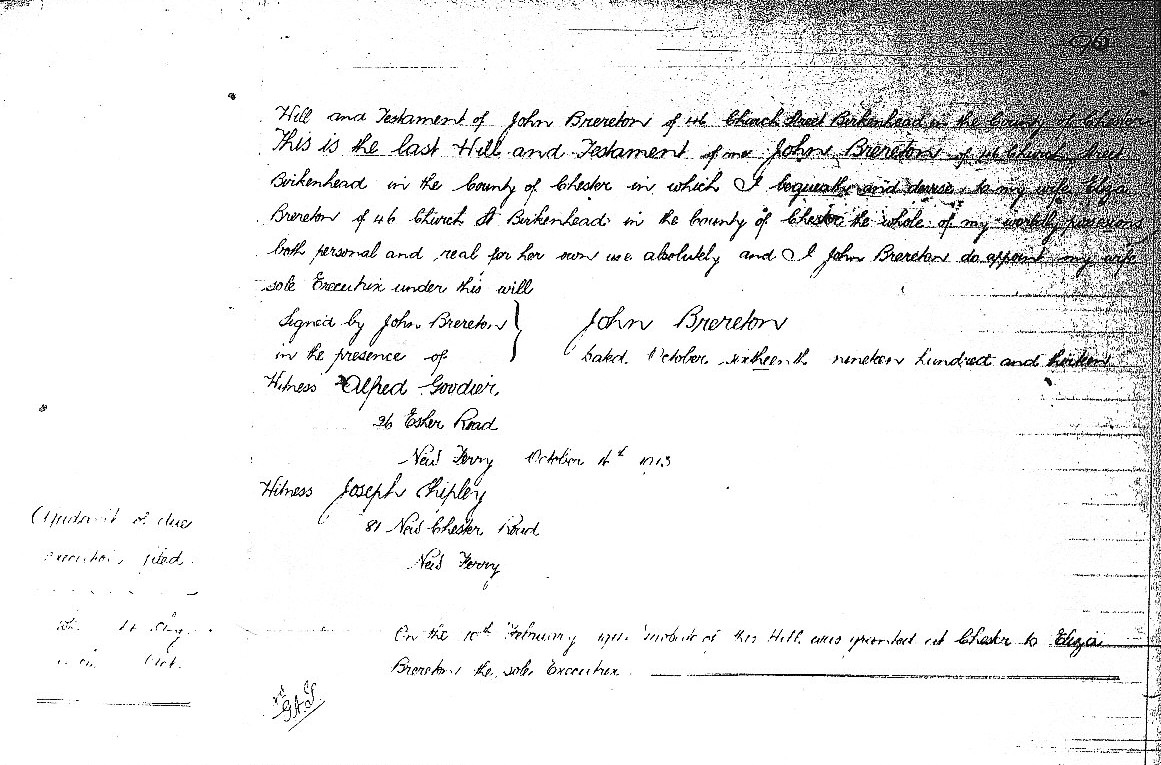 Will and Testament of John Brereton of 46 Church Street Birkenhead in the County of Chester
This is the last Will and Testament of me John Brereton of 46 Church Street
Birkenhead in the County of Chester in which I bequeath and devise to my wife Eliza
Brereton of 46 Church St Birkenhead in the County of Chester the whole of my worldly possessions
both personal and real for her own use absolutely and I John Brereton do appoint my wife
sole Executrix under this will
Signed by John Brereton John Brereton
in the presence of Dated October sixteenth nineteen hundred and thirteen
Witness Alfred Goodier
26 Esher Road
New Ferry October 16th 1913
Witness Joseph Shipley
81 New Chester Road
New Ferry
Affidavit of due
execution filed
On the 10th February probate of this Will was granted at Chester to Eliza
Brereton the sole Executrix